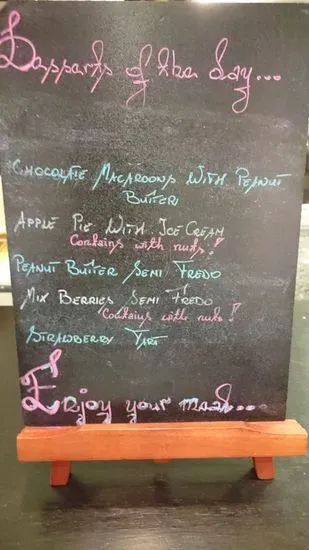 Desserts of the day...
CHOCOLATE MACAROONS WITH PEANUT
BUTTER
APPLE PIE WITH ICE CREAM
Contains with nuts!
PEANUT BUTTER SEMI FREDO
MIX BERRIES SEMI FREDO
Contains with nuts!
STRAWBERRY TART
Enjoy your meal...